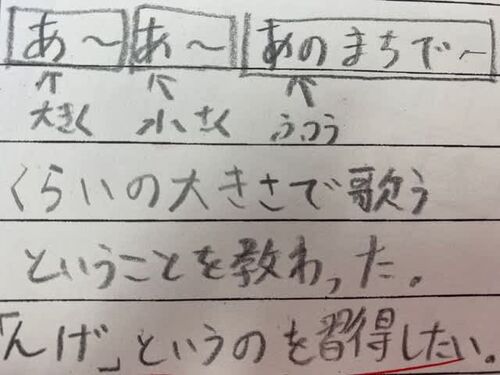 あ〜 あ〜 あのまちで〜
大きく 小さく ふつう
くらいの大きさで歌う
ということを教わった。
「んげ」というのを習得したい。